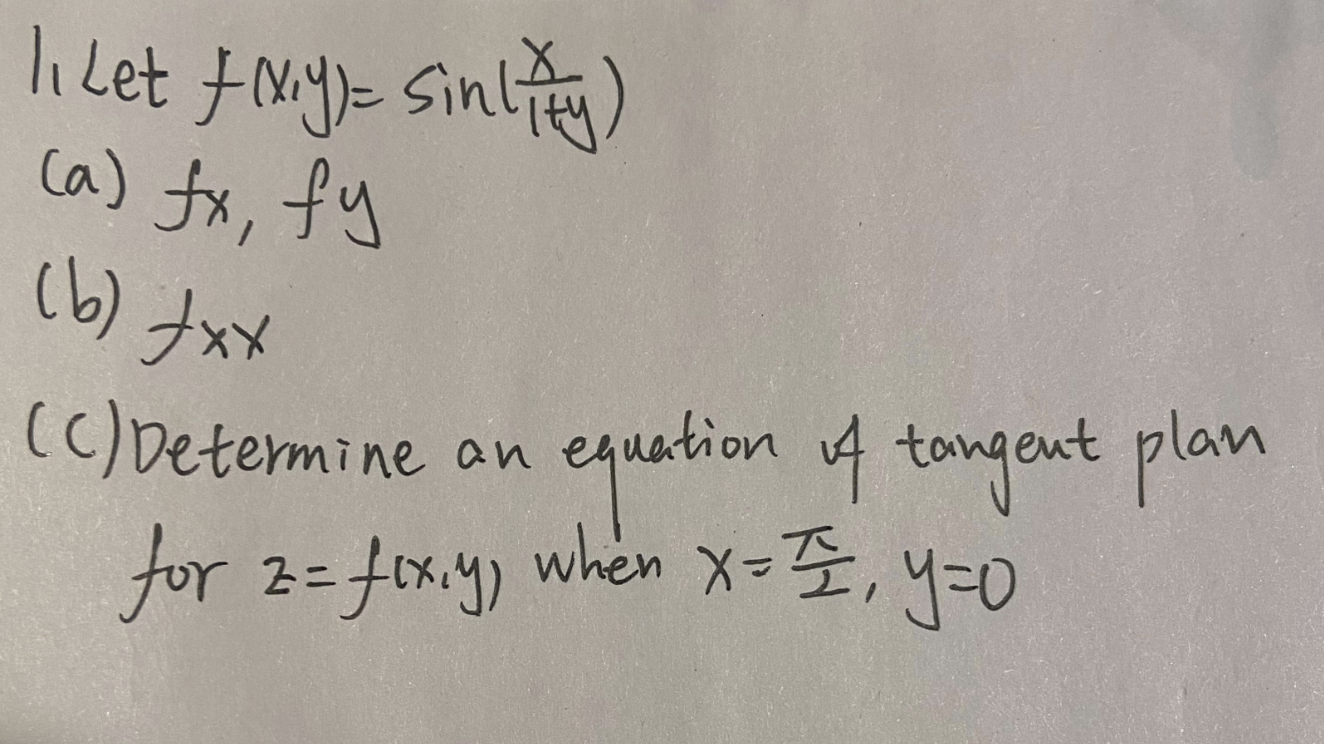 1. Let f(x,y)= sin(x/(1+y))
(a) fx, fy
(b) fxx
(C) Determine an equation of tangent plan
for z=f(x,y) when x=π/2, y=0